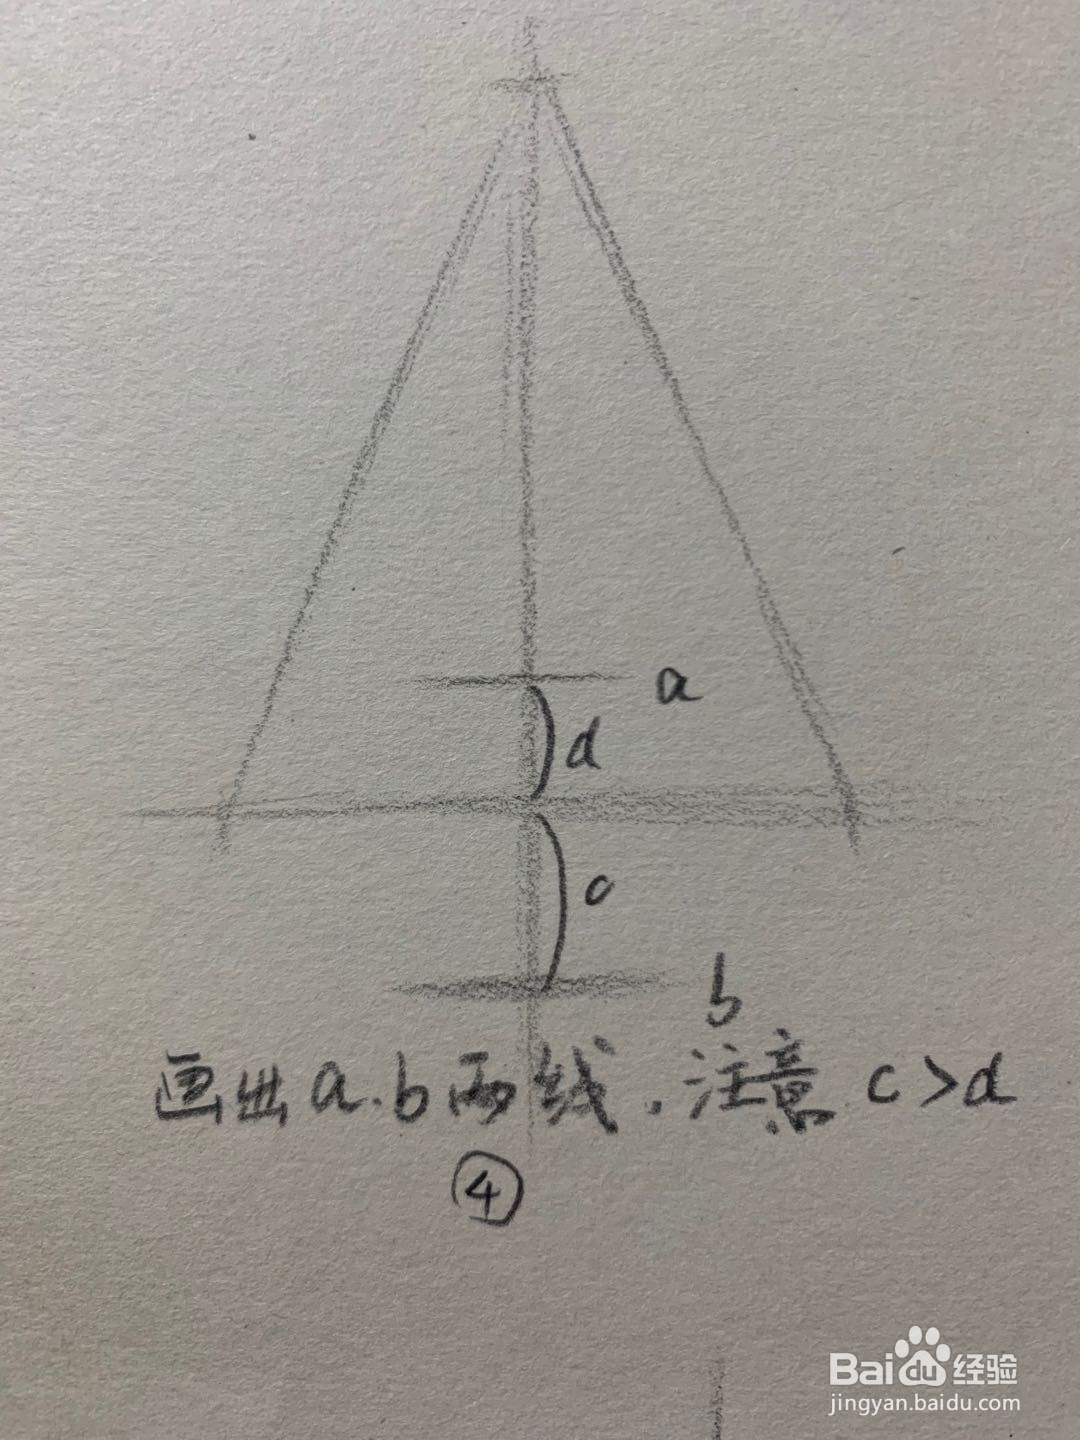 a
d
c
b
画出a.b两线.注意 c>d
④
Baidu经验
jingyan.baidu.com